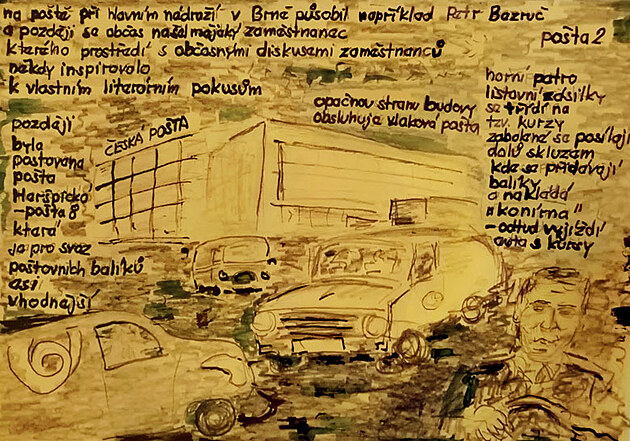 na poště při hlavním nádraží v Brně působil například Petr Bezruč
a později se občas našel nějaký zaměstnanec
kterého prostředí s občasnými diskusemi zaměstnanců
někdy inspirovalo
k vlastním literárním pokusům
pošta 2
opačnou stranu budovy
obsluhuje vlaková pošta
ČESKÁ POŠTA
později
byla
postavena
pošta
Heršpická
-pošta 8
která
je pro svoz
poštovních balíků
asi
vhodnější
horní patro
listovní zásilky
se třídí na
tzv. kurzy
zabalené se posílají
dolů skluzem
kde se přidávají
balíky
a nakládá
"konírna"
-odtud vyjíždí
auta s kursy